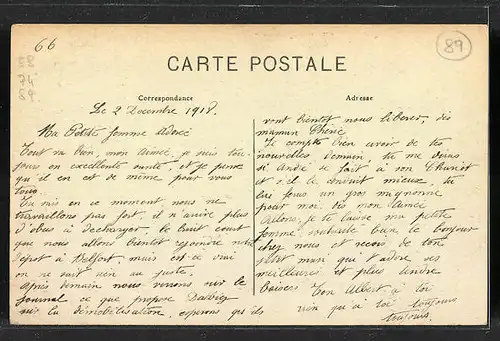 66
89
CARTE POSTALE
Correspondance
Adresse
Le 2 Decembre 1918.
Ma Petite femme Adoré
Tout va bien, mon Aimée, je suis tou-
jours en excellente santé et je pense
qu'il en est de même pour vous
tous.
en ce moment nous ne
travaillons pas fort, il n'arrive plus
d'obus à decharger, le bruit court
que nous allons bientot rejoindre notre
depot à Belfort, mais est ce vrai
on ne sait rien au juste.
Après demain nous verrons sur le
journal ce que propose
sur la démobilisation, esperons qu'ils
vont bientot nous liberer, dis
maman
Je compte bien avoir de tes
nouvelles demain tu me diras
si André se fait à son
et s'il le mieux, tu
lui feras un gros
pour moi, dis mon Aimée
Allons, je te laisse ma petite
femme bien le bonjour
chez nous et recois de ton
petit mari qui t'adore ses
meilleures et plus tendre
baisers Ton Albert à toi
rien qu'à toi toujours
toujours.